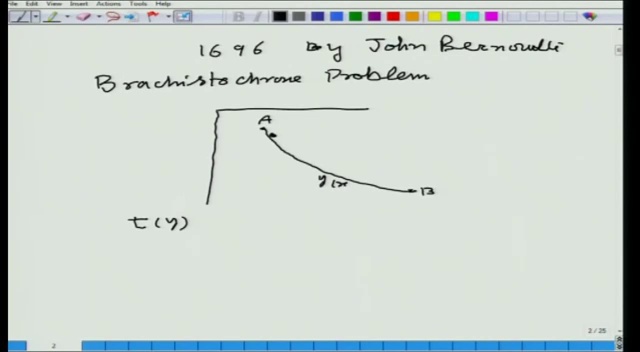 Edit View Insert Actions Tools Help
1696 By John Bernoulli
Brachistochrone Problem
A
y(x)
B
t(y)
2 / 25
2